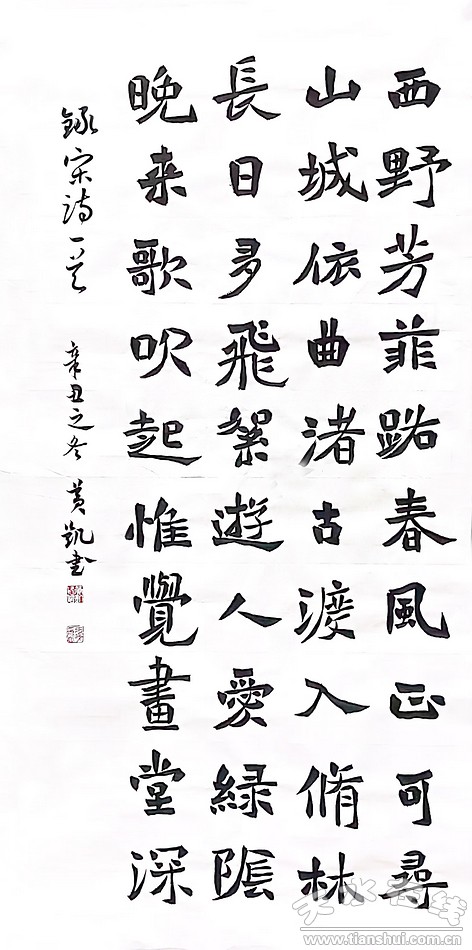 西野芳菲路春風正可尋
山城依曲渚古渡入脩林
長日多飛絮遊人愛緑陰
晚来歌吹起惟覺畫堂深
錄宋诗一首 辛丑之冬 黄凯書
天水在线
www.tianshui.com.cn